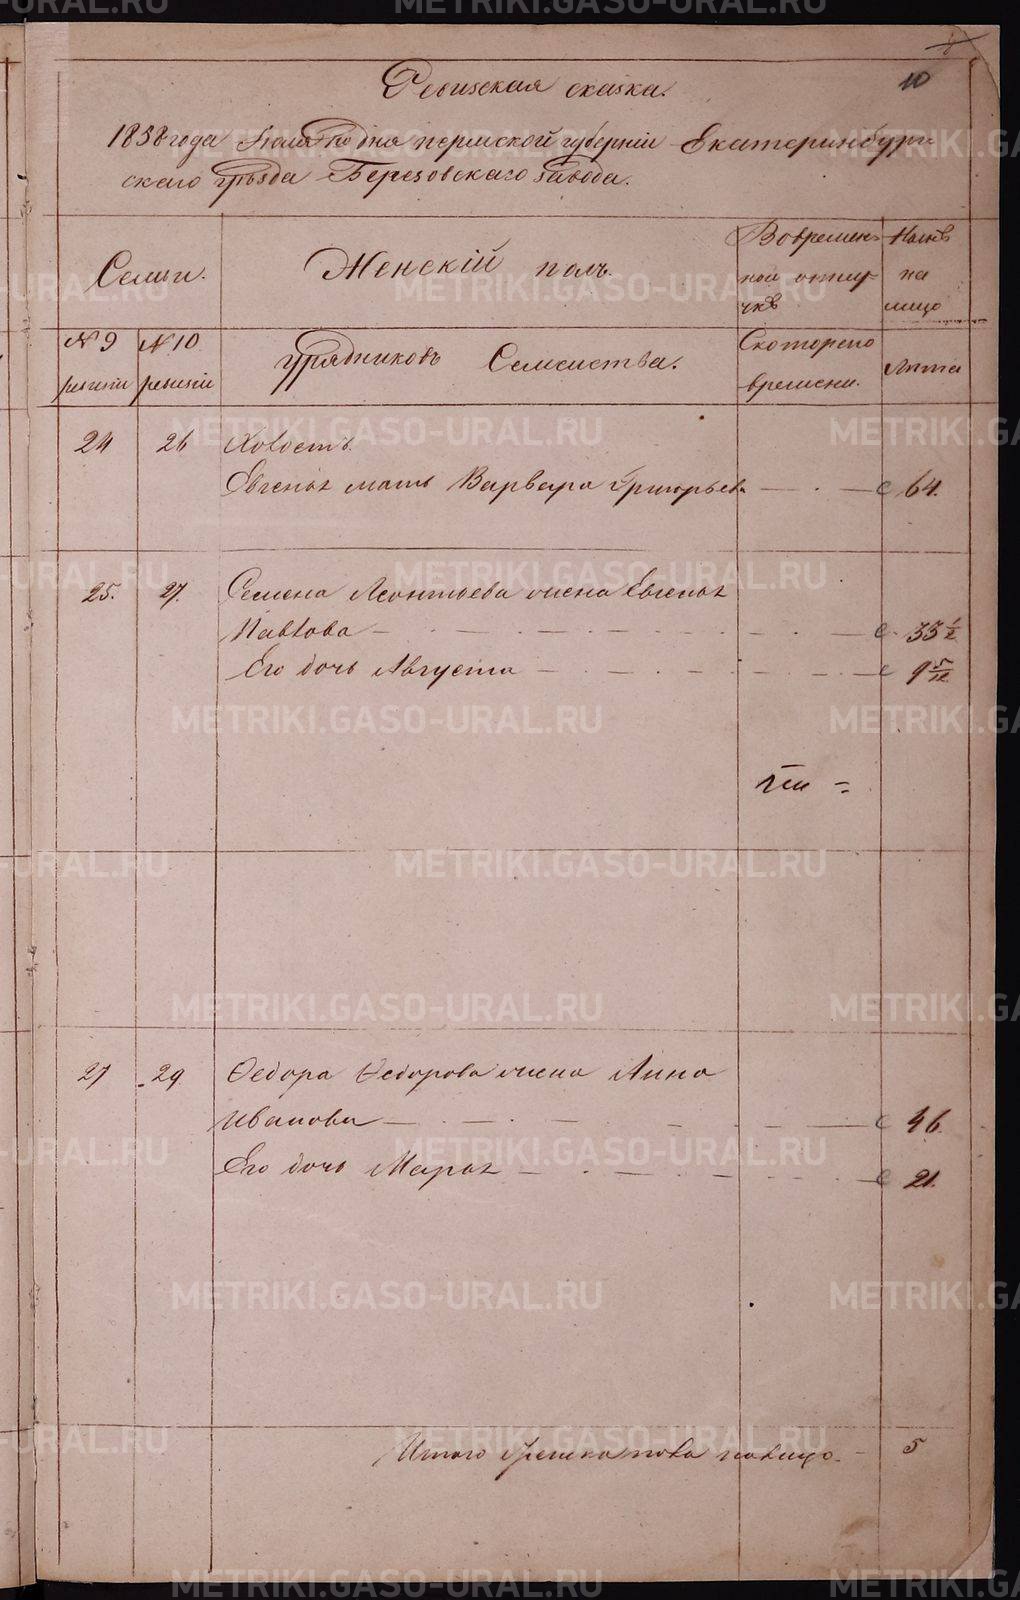 10
Ревизская сказка.
1858 года дня пермской губерніи Екатеринбург
скаго уѣзда Березовскаго завода.
Семьи.
Женскій полъ.
Вовремен
ной отлу-
чкѣ
Нынѣ
на
лицо
№ 9
ревизіи
№ 10
ревизіи
Урядниковъ Семейства.
Скотораго
времени.
Лѣта
24 26
Евгенья мать Варвара Григорьева с 64.
25. 27. Семена Леонтьева жена Евгенья
Павлова с 33 1/2
Его дочь Августа с 9 5/12
27 29 Ѳедора Ѳедорова жена Анна
Иванова с 46.
Его дочь Марья с 21.
Итого женска пола налицо 5
METRIKI.GASO-URAL.RU